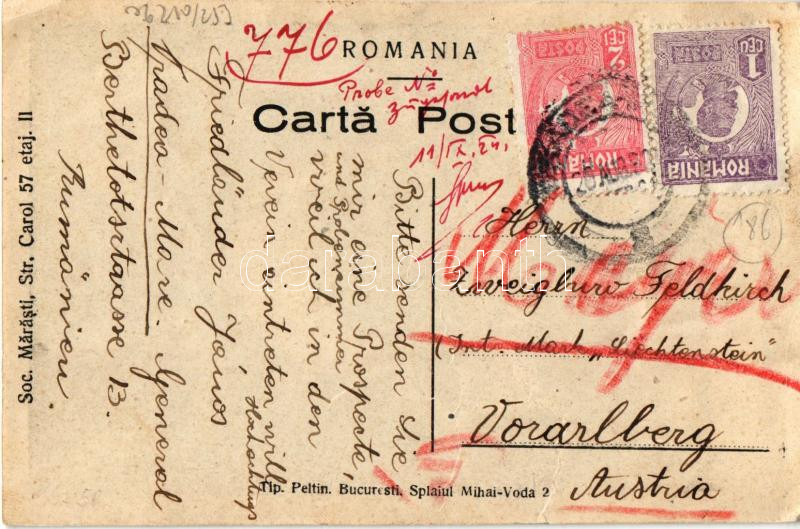 776
ROMANIA
Cartă Post
Probe No
11/IX. 24.
Bitte senden Sie
mir eine Prospecte,
und Probenummer
weil ich in den
Verein eintreten will
Hochachtungs
Friedländer János
Oradea-Mare. General
Berthelotstrasse 13.
Rumänien
Soc. Mărăști, Str. Carol 57 etaj. II
2 LEI
POSTA
ROMÂNIA
1 LEU
POSTA
ROMÂNIA
186
Herrn
Zweigburo Feldkirch
(Int. Mark „Liechtenstein"
Vorarlberg
Austria
Tip. Peltin. Bucuresti. Splaiul Mihai-Voda 2
darabanth